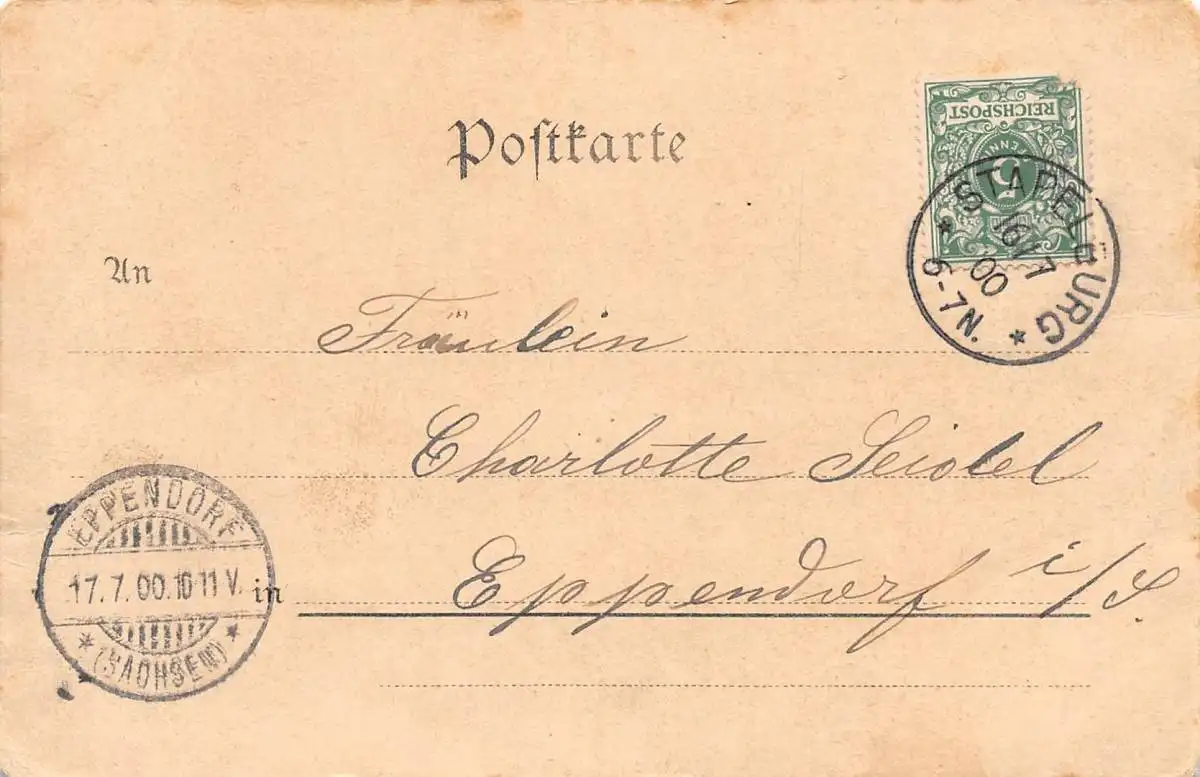 Postkarte
REICHSPOST
5
PFENNIG
STAPELBURG
16/7
00
* 6-7N. *
An
Fräulein
Charlotte Seidel
in Eppendorf i/S
EPPENDORF
17.7.00.10-11 V.
* (SACHSEN) *